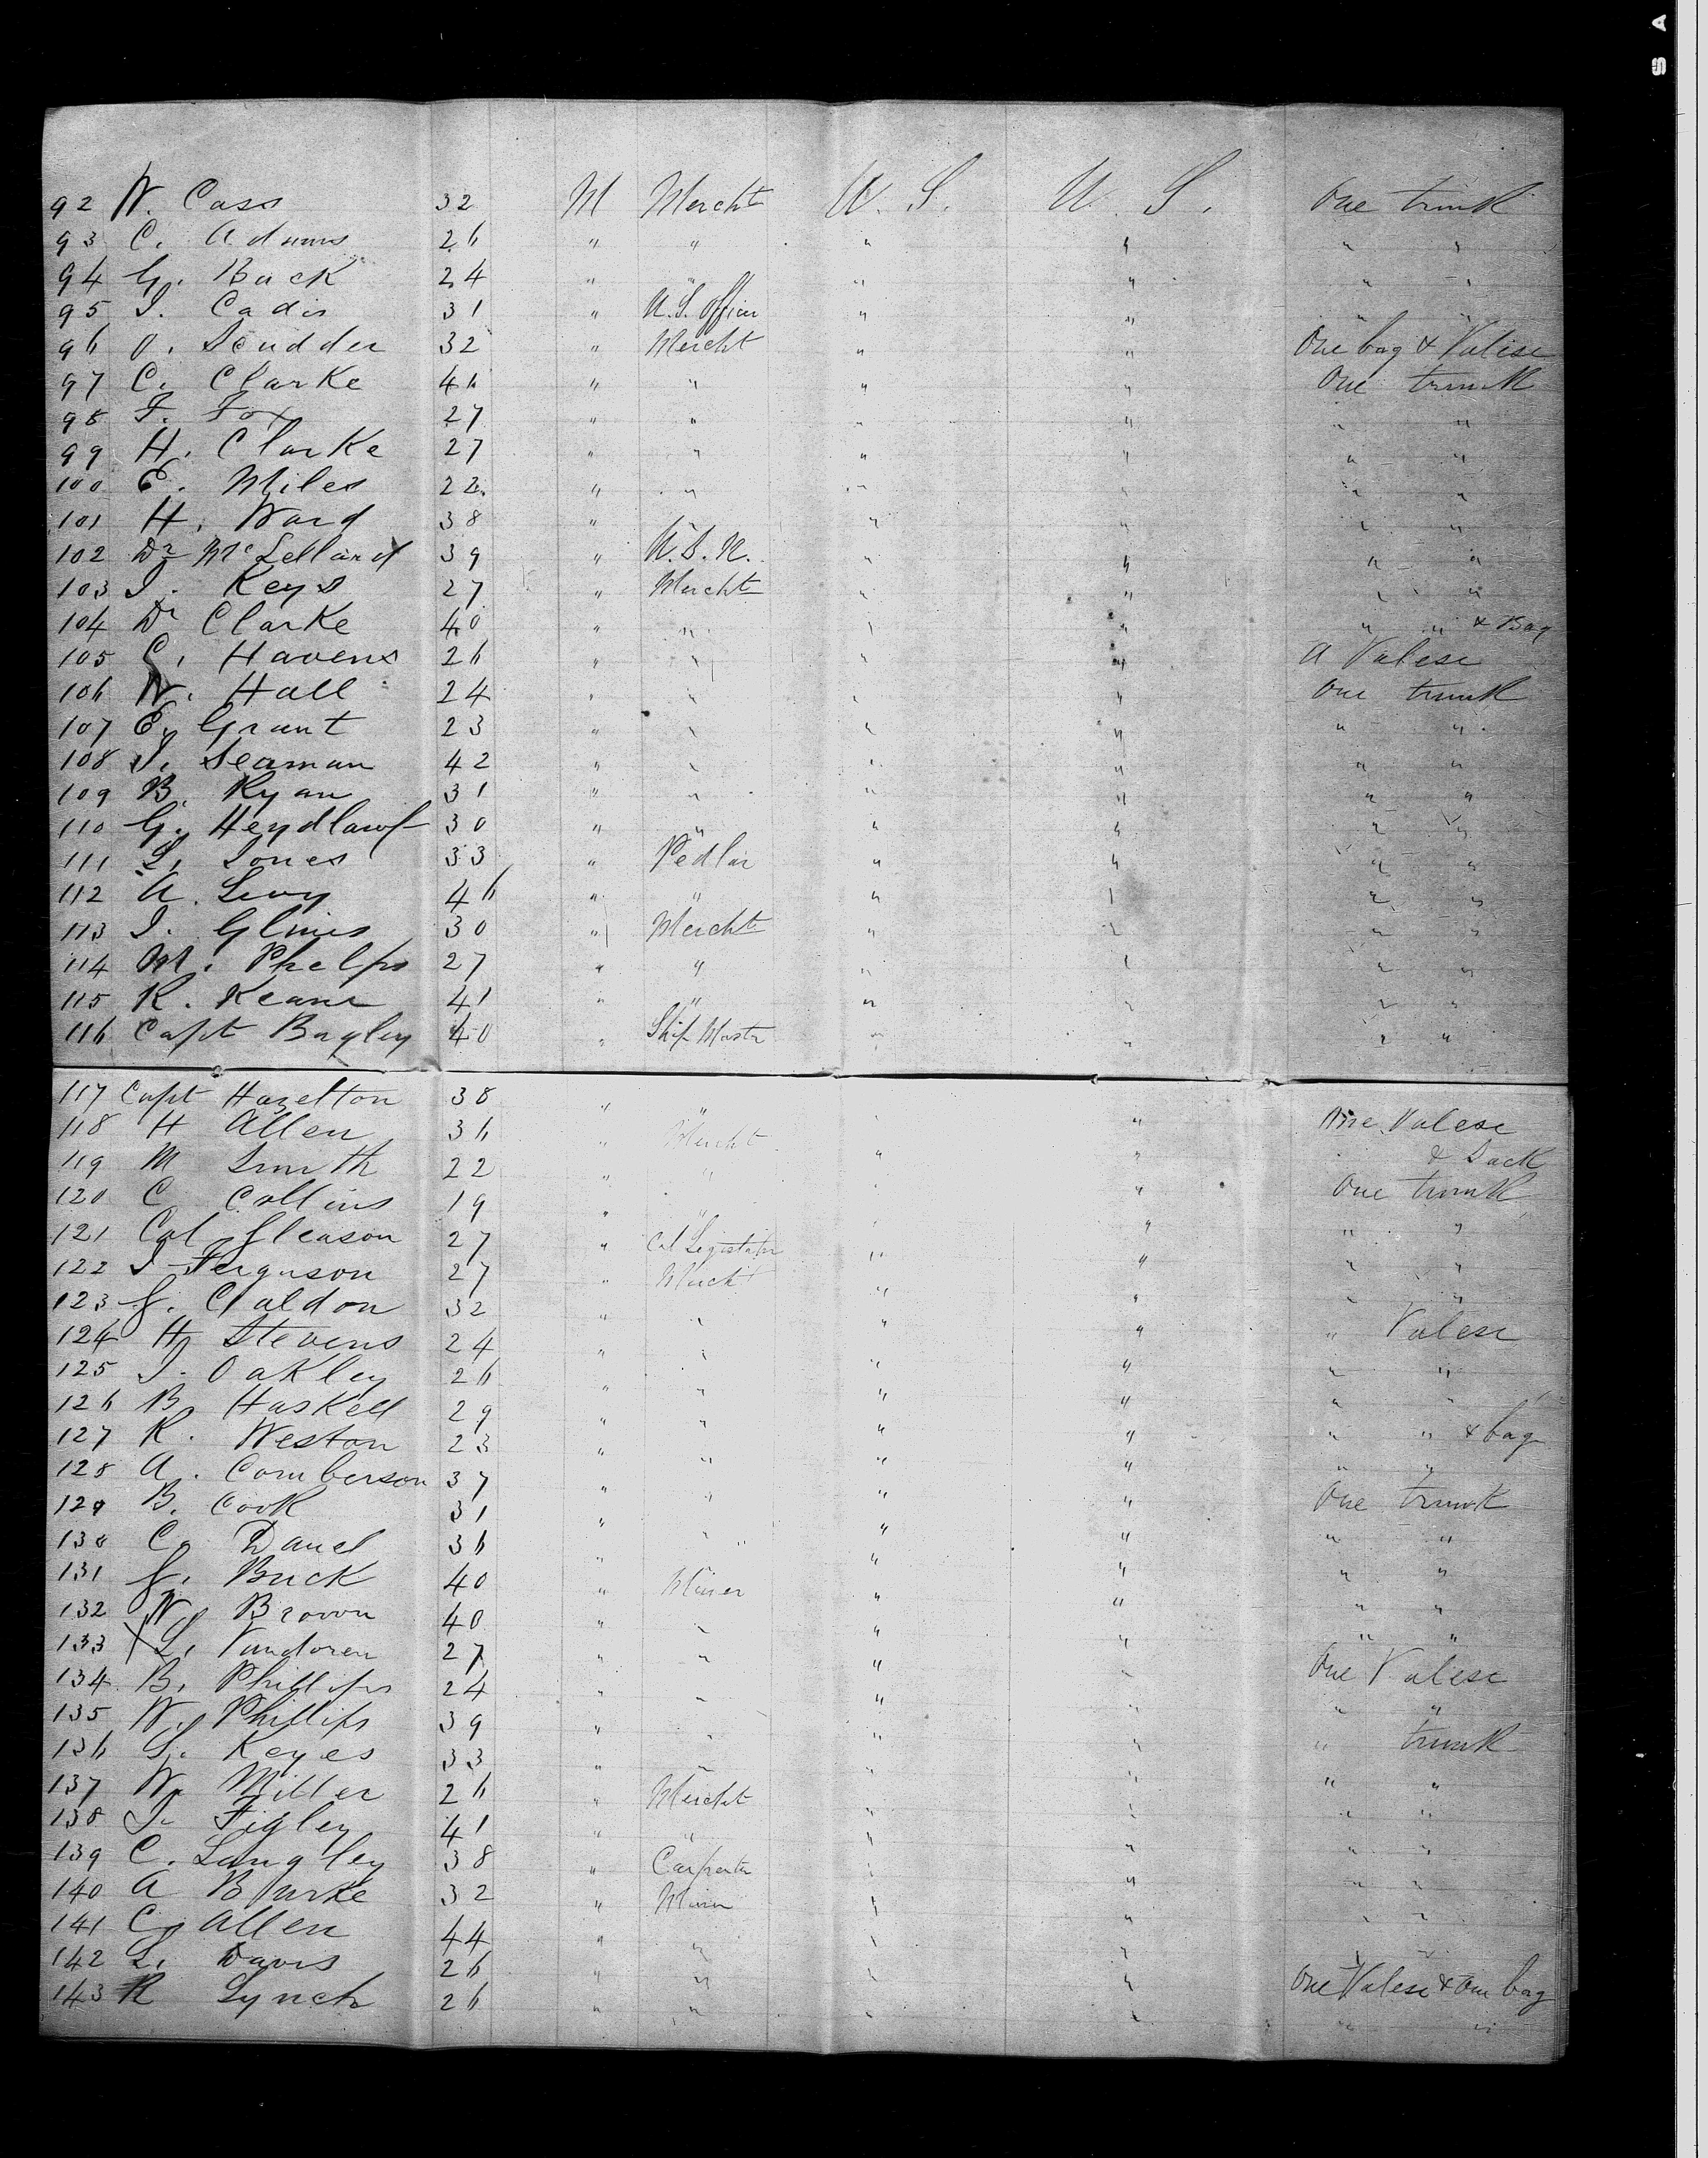 92 W. Cass 32 M Mercht U. S. U. S. One trunk
93 C. Adams 26 " " " " " "
94 G. Buck 24 " " " " " "
95 I. Cadis 31 " U.S. Officer " " " "
96 O. Scudder 32 " Mercht " " One bag & Valise
97 C. Clarke 46 " " " " One trunk
98 F. Fox 27 " " " " " "
99 H. Clarke 27 " " " " " "
100 E. Miles 22 " " " " " "
101 H. Ward 38 " " " " "
102 Dr McLelland 39 " U.S.N. " " " "
103 I. Keys 27 " Mercht " " " "
104 Dr Clarke 40 " " " " " " & Bag
105 C. Havens 26 " " " " A Valese
106 W. Hall 24 " " " " One trunk
107 E. Grant 23 " " " " " "
108 I. Seaman 42 " " " " " "
109 B. Ryan 31 " " " " " "
110 G. Heydlauf 30 " " " " " "
111 L. Jones 33 " Pedlar " " " "
112 A. Levy 46 " " " " " "
113 I. Glines 30 " Mercht " " " "
114 M. Phelps 27 " " " " " "
115 R. Keane 41 " " " " " "
116 Capt Bagley 40 " Ship Master " " " "
117 Capt Hazelton 38 " " " "
118 H Allen 36 " Mercht " " One Valese
119 M Smith 22 " " " " & Sack
120 C Collins 19 " " " " One trunk
121 Col Gleason 27 " Cal Legislatr " " " "
122 I Ferguson 27 " Mercht " " " "
123 J. Claldon 32 " " " " " "
124 H Stevens 24 " " " " " Valese
125 I. Oakley 26 " " " " " "
126 B. Haskell 29 " " " " " "
127 R. Weston 23 " " " " " " & bag
128 A. Comberson 37 " " " " " "
129 B. Cook 31 " " " " One trunk
130 C. Danel 36 " " " " " "
131 J. Buck 40 " Miner " " " "
132 W. Brown 40 " " " " " "
133 L. Vandoren 27 " " " " " "
134 B. Phillips 24 " " " " One Valese
135 W. Phillips 39 " " " " " "
136 S. Keyes 33 " " " " " trunk
137 W. Miller 26 " Mercht " " " "
138 I. Figley 41 " " " " " "
139 C. Langley 38 " Carpenter " " " "
140 A Burke 32 " Miner " " " "
141 C. Allen 44 " " " " " "
142 L. Davis 26 " " " " " "
143 R Lynch 26 " " " " One Valese & One bag
" "